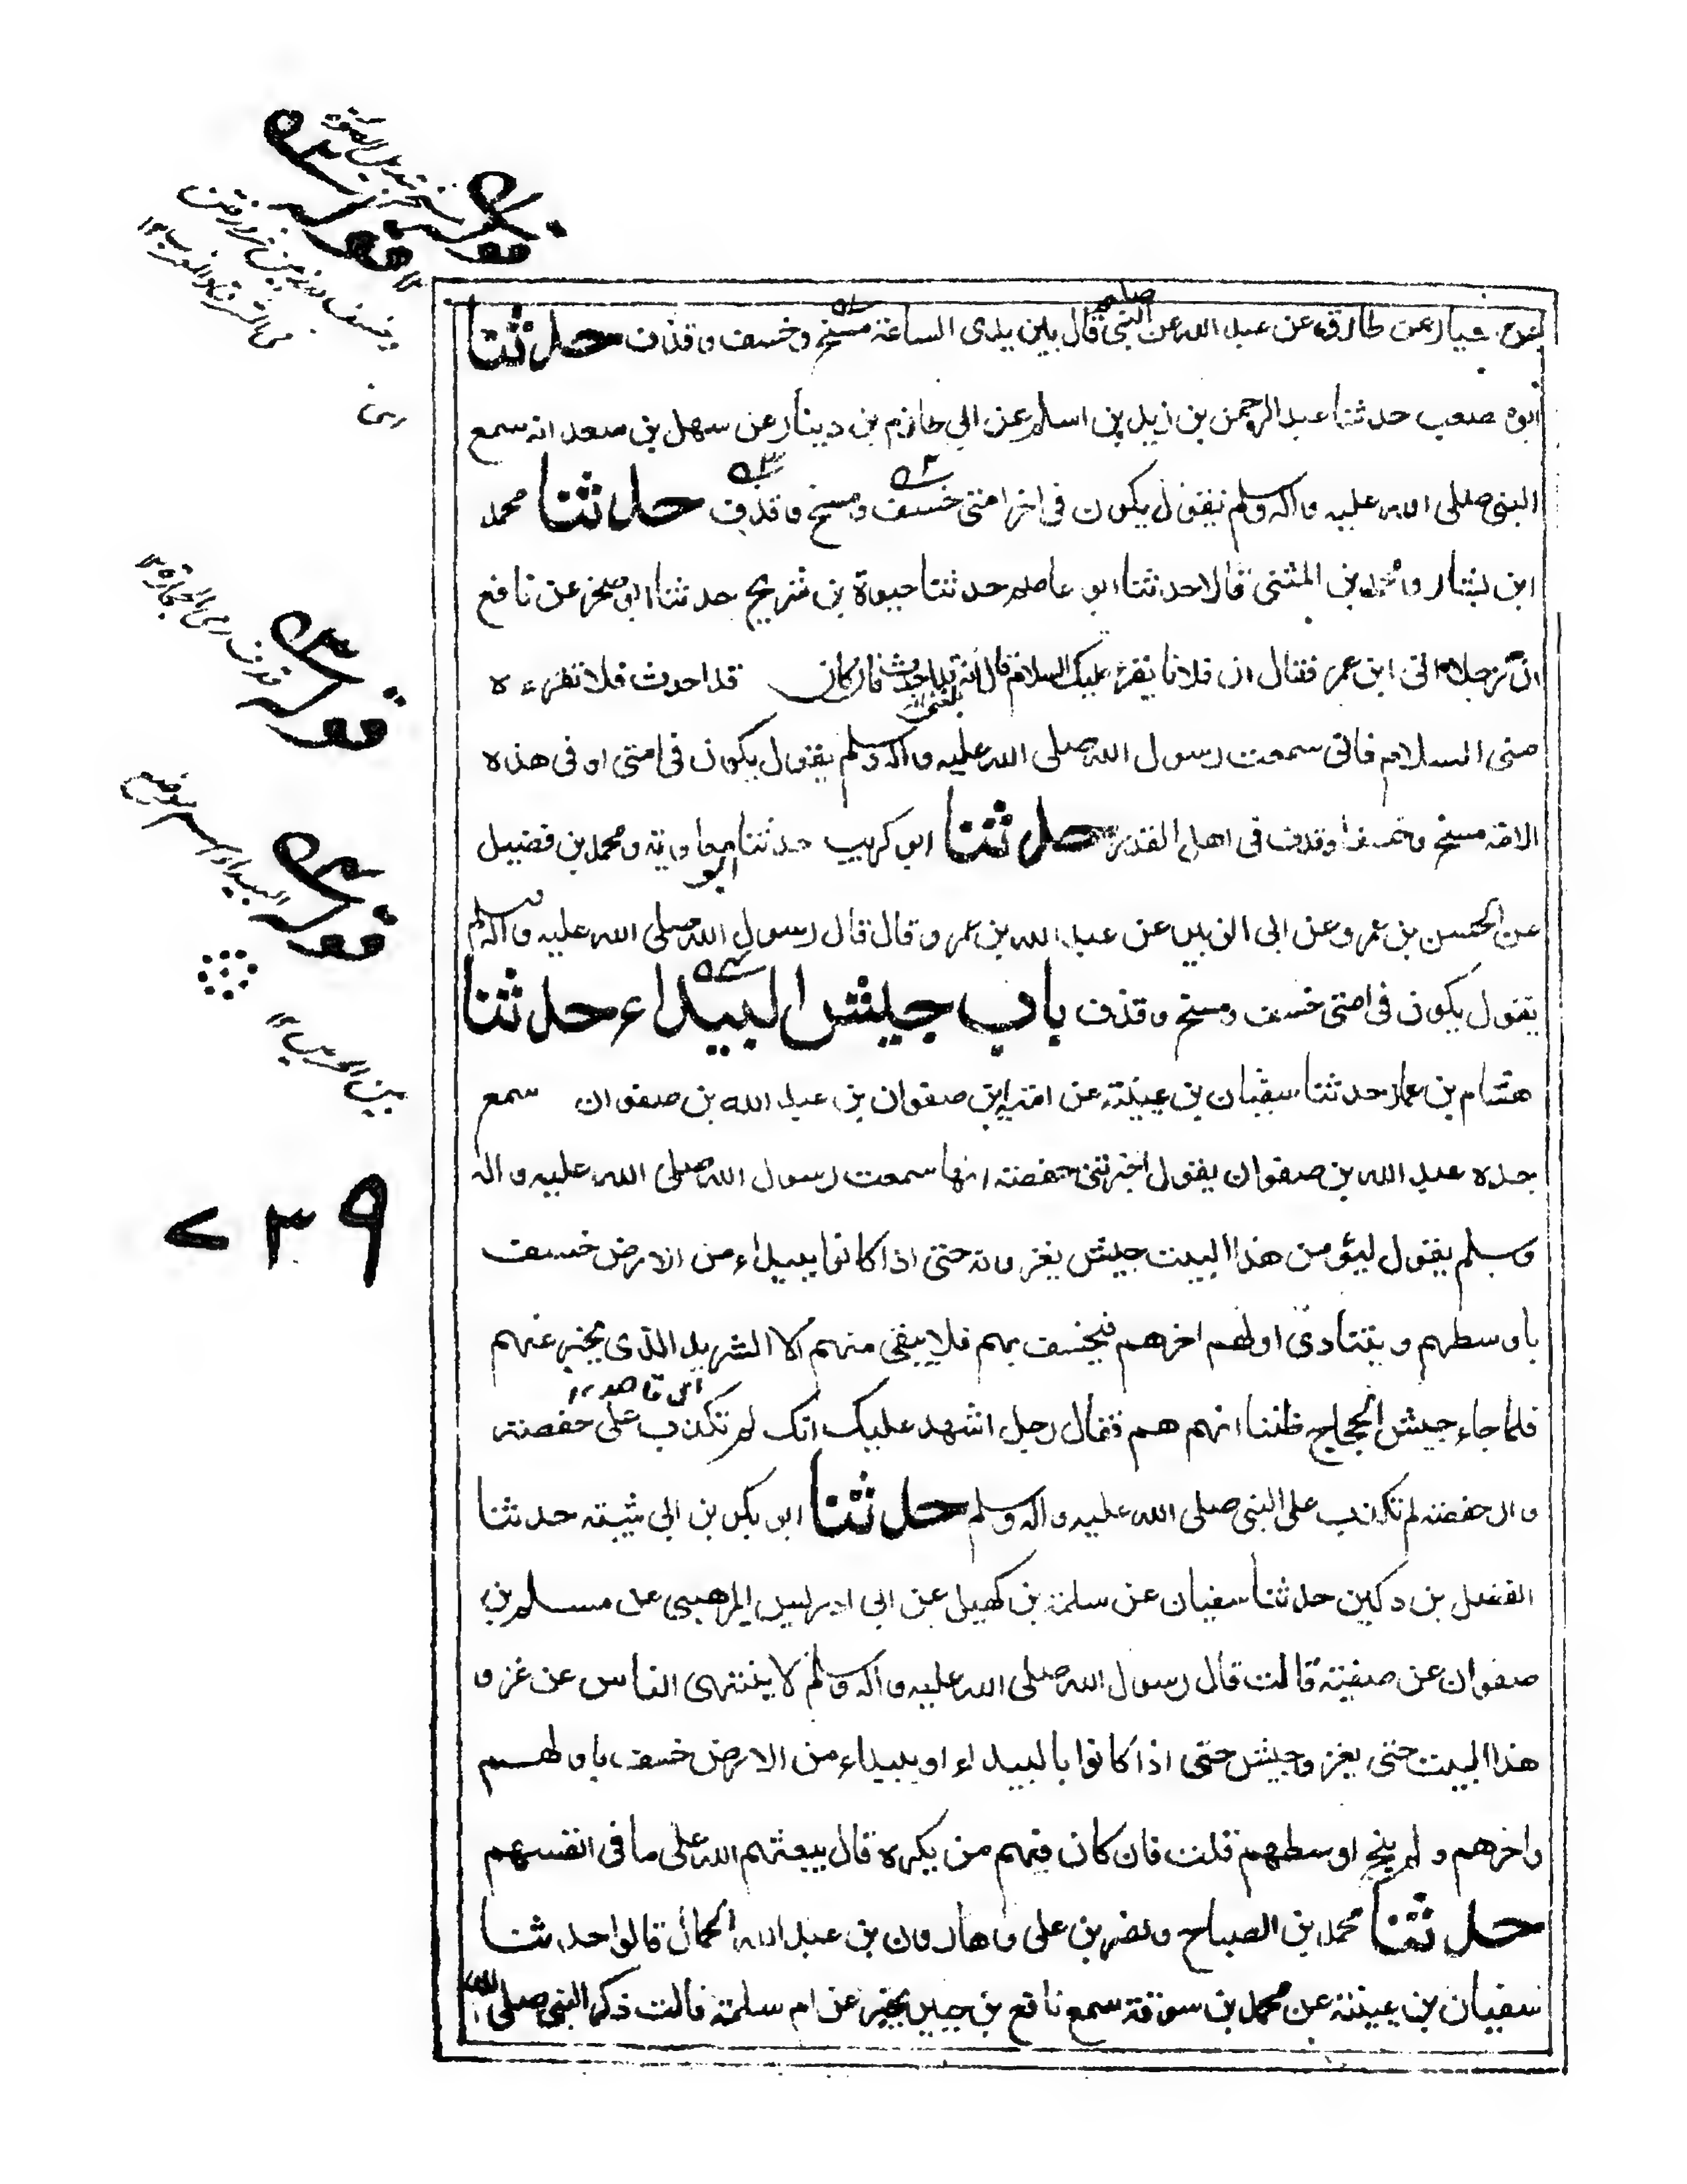 عن سيار عن طارق عن عبد الله عن النبي صلعم قال بين يدى الساعة مسخ وخسف وقذف حدثنا
ابو مصعب حدثنا عبد الرحمن بن زيد بن اسلم عن ابى حازم بن دينار عن سهل بن سعد انه سمع
النبى صلى الله عليه واله وسلم يقول يكون فى اخر امتى خسف ومسخ وقذف حدثنا محمد
ابن بشار ومحمد بن المثنى قالا حدثنا ابو عاصم حدثنا حيوة بن شريح حدثنا ابو صخر عن نافع
ان رجلا اتى ابن عمر فقال ان فلانا يقرء عليك السلام قال انه بلغنى انه قد احدث فان كان قد احدث فلا تقرءه
منى السلام فانى سمعت رسول الله صلى الله عليه واله وسلم يقول يكون فى امتى او فى هذه
الامة مسخ وخسف وقذف فى اهل القدر حدثنا ابو كريب حدثنا ابو معاوية ومحمد بن فضيل
عن الحسن بن عمرو عن ابى الزبير عن عبد الله بن عمرو قال قال رسول الله صلى الله عليه واله وسلم
يقول يكون فى امتى خسف ومسخ وقذف باب جيش البيداء حدثنا
هشام بن عمار حدثنا سفيان بن عيينة عن امية ابن صفوان بن عبد الله بن صفوان سمع
جده عبد الله بن صفوان يقول اخبرتنى حفصة انها سمعت رسول الله صلى الله عليه واله
وسلم يقول ليؤمن هذا البيت جيش يغزونه حتى اذا كانوا ببيداء من الارض خسف
باوسطهم ويتنادى اولهم اخرهم فيخسف بهم فلا يبقى منهم الا الشريد الذى يخبر عنهم
اى قاصد ١٢
فلما جاء جيش الحجاج ظننا انهم هم فقال رجل اشهد عليك انك لم تكذب على حفصة
وان حفصة لم تكذب على النبى صلى الله عليه واله وسلم حدثنا ابو بكر بن ابى شيبة حدثنا
الفضل بن دكين حدثنا سفيان عن سلمة بن كهيل عن ابى ادريس المرهبى عن مسلم بن
صفوان عن صفية قالت قال رسول الله صلى الله عليه واله وسلم لا ينتهى الناس عن غزو
هذا البيت حتى يغزو جيش حتى اذا كانوا بالبيداء او ببيداء من الارض خسف باولهم
واخرهم ولم ينج اوسطهم قلت فان كان فيهم من يكره قال يبعثهم الله على ما فى انفسهم
حدثنا محمد بن الصباح ونصر بن على وهارون بن عبد الله الحمال قالوا حدثنا
سفيان بن عيينة عن محمد بن سوقة سمع نافع بن جبير يخبر عن ام سلمة قالت ذكر النبى صلى الله
قوله
قوله
قوله
قذف رمى الحجارة ١٢
قوله
البيداء اسم موضع
بين الحرمين ١٢
٧٣٩